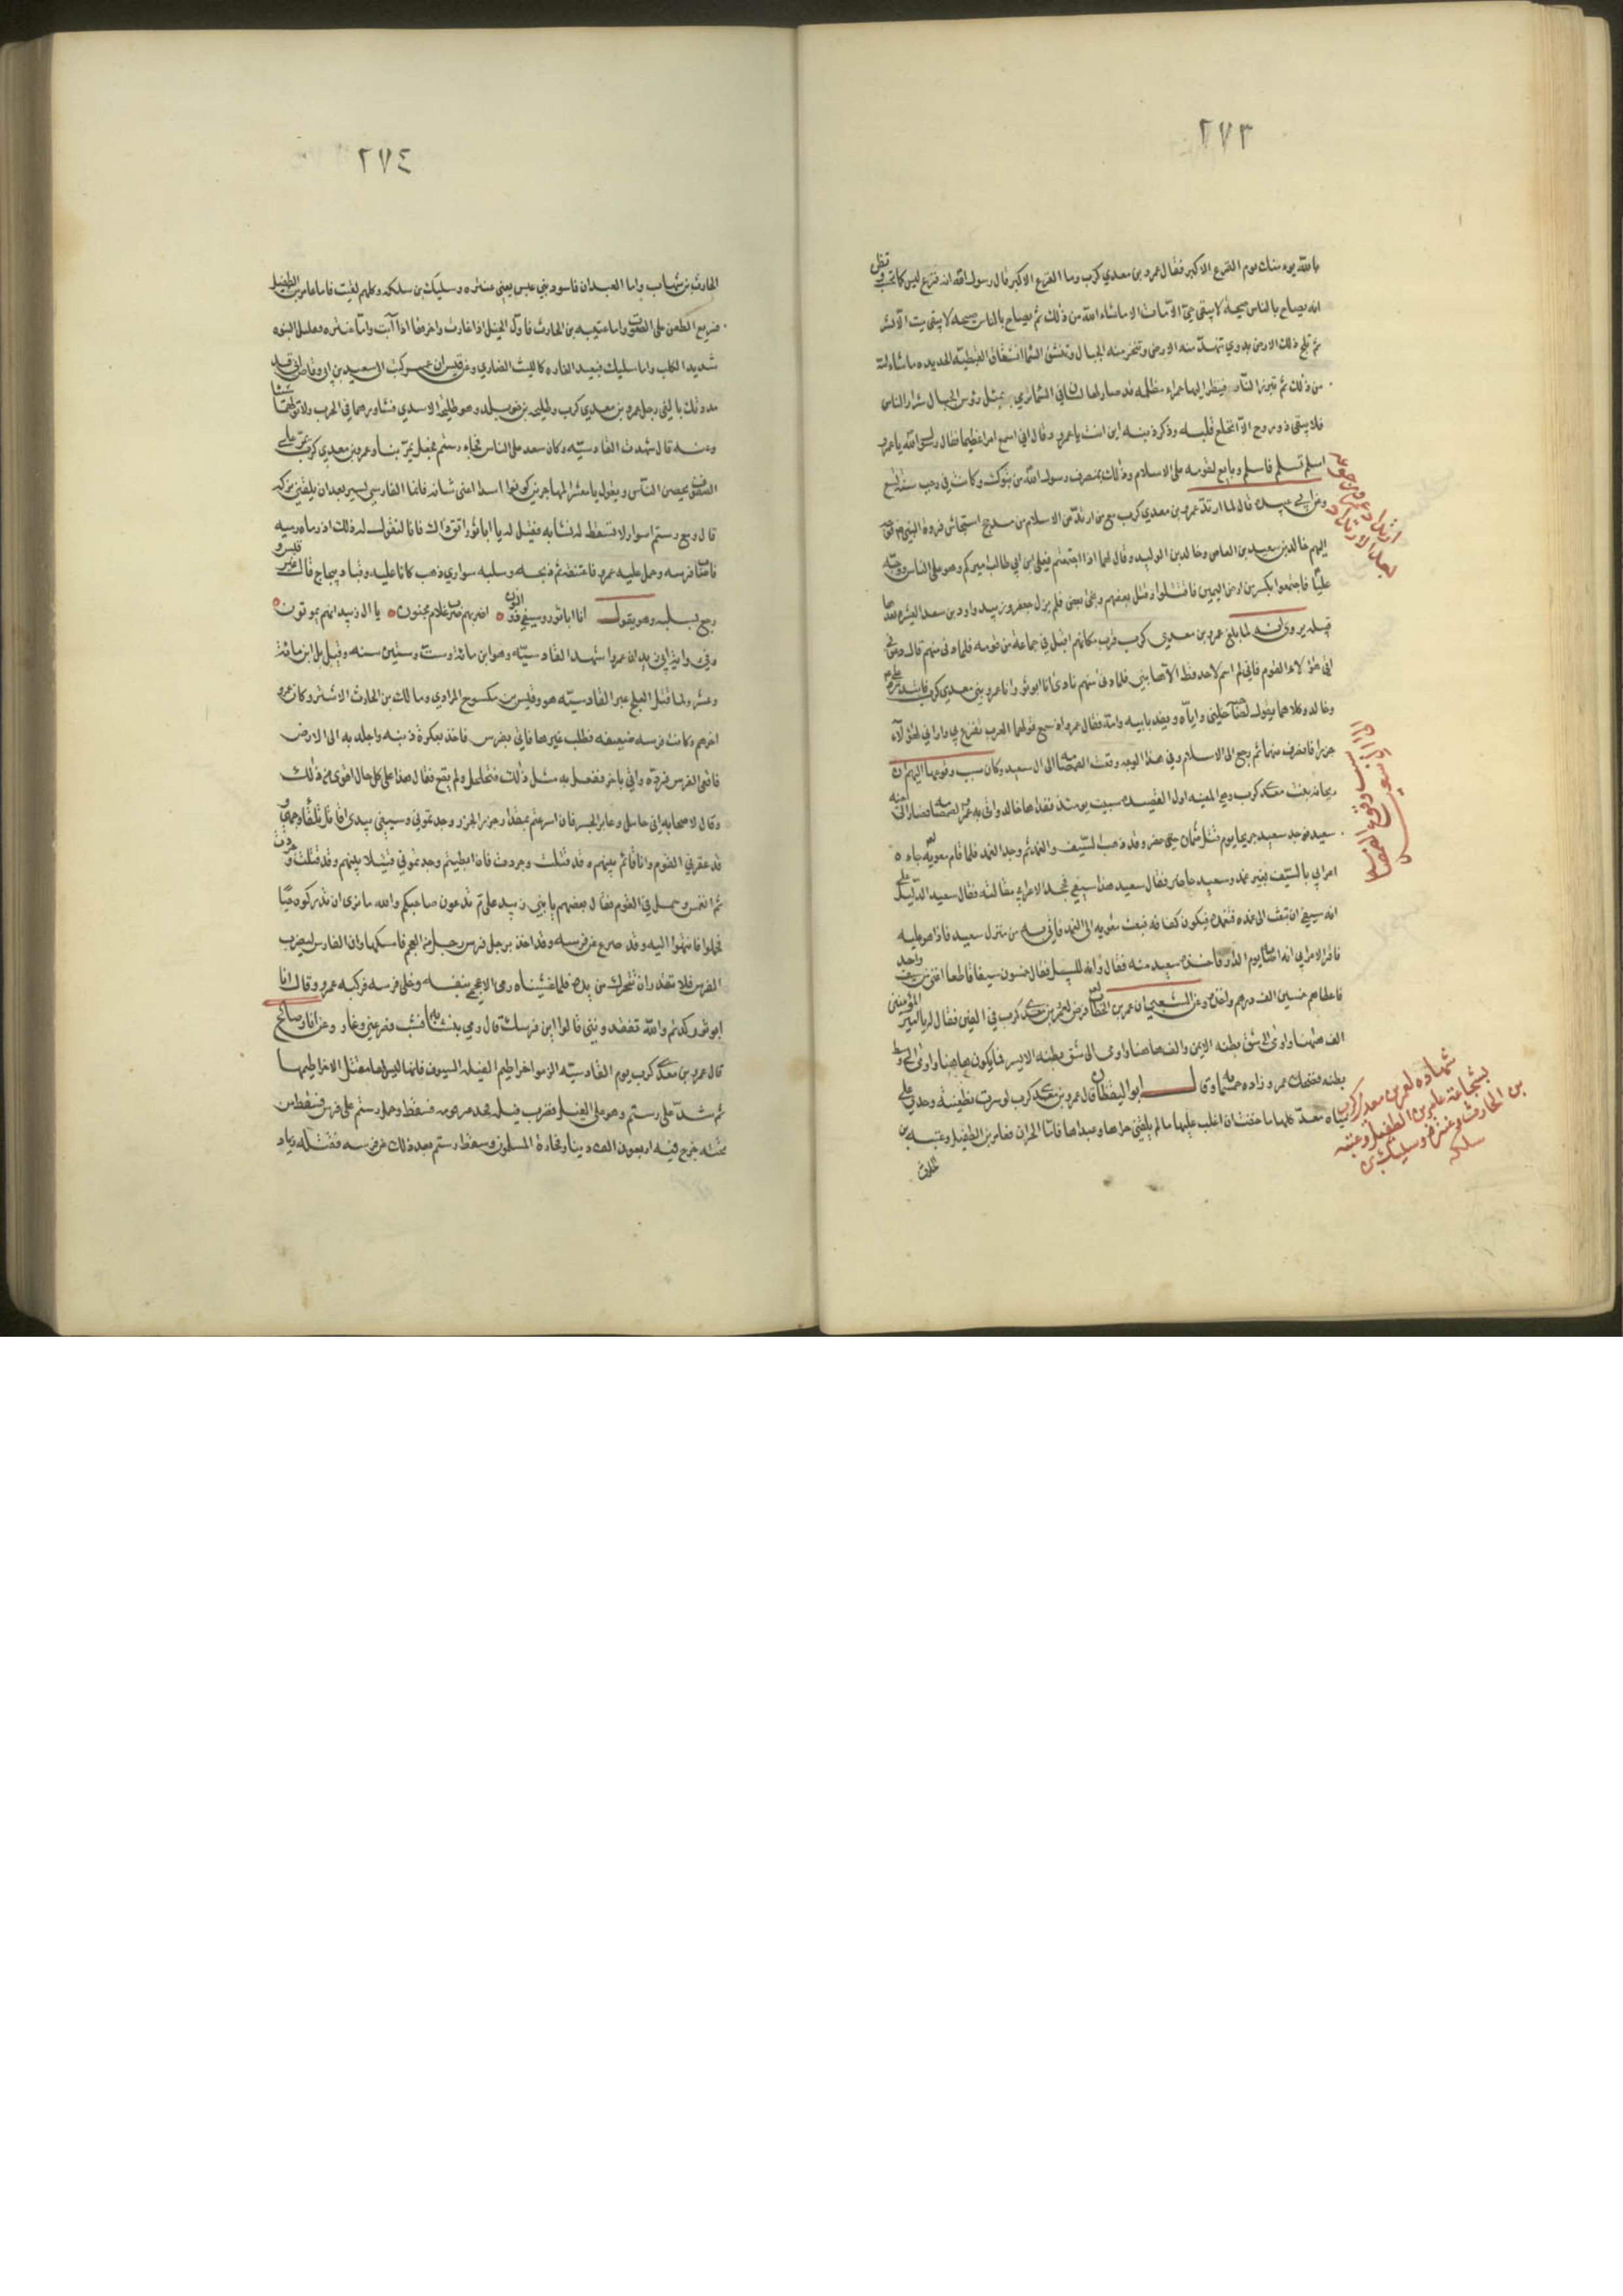 ٢٧٣
بالله يوم القزع الاكبر فقال عمرو بن معدي كرب وما الفزع الاكبر قال رسول الله انه فزع ليس كما تحسب وتظن
انه يصاح بالناس صيحة لا يبقى حيّ الا مات الا ما شاء الله من ذلك ثم يصاح بالناس صيحه لا يبقى ميت الا نشر
ثم تلج ذلك الارض بدوي تنهدّ منه الارض وتخر منه الجبال وتنشق السما انشقاق القبطيه الجديده ما شاء الله
من ذلك ثم تبرز النار فينظر اليها حمراء مظلمه قد صار لها لسان في السما ترمي بمثل رؤس الجبال شرار الناس
فلا يبقى ذو روح الا انخلع قلبه وذكر ذنبه اين انت يا عمرو قال اني اسمع امرا عظيما فقال رسول الله يا عمرو
اسلم تسلم فاسلم وبايع لقومه على الاسلام وذلك بمنصرف رسول الله من تبوك وكانت في رجب سنة تسع
قال لما ارتد عمرو بن معدي كرب مع من ارتدّ عن الاسلام من مذحج استجاش فروة النبي
اليهم خالد بن سعيد بن العاص وخالد بن الوليد وقال لهما اذا اجتمعتم فعلي بن ابي طالب اميركم وهو على الناس ووجه
عليّا فاجتمعوا بكسر من ارض اليمن فاقتتلوا وقتل بعضهم ونجى بعض فلم يزل جعفر وزبيد واود بن سعد العشيره بعدها
قليله لما بلغ عمرو بن معدي كرب قرب مكانهم اقبل في جماعة من قومه فلما دنى منهم قال دعوني حتى
اتي هؤلاء القوم فاني لم اسم لاحد قط الا هابني فلما دنى منهم نادى انا ابو ثور وانا عمرو بن معدي كرب فابتدره علي
وخالد وكلاهما يقول لصاحبه خلّني واياه ويفديه بابيه وامه فقال عمرو اذ سمع قولهما العرب تفزع بي واراني لهؤلاء
جزرا فانصرف عنهما ثم رجع الى الاسلام وفي هذا الوجه وقعت الصمصامه الى ال سعيد وكان سبب وقوعها اليهم ان
ريحانه بنت معدي كرب سبيت يومئذ ففداها خالد واثابه عمرو الصمصامه فصار الى
سعيد فوجد سعيد جريحا يوم قتل عثمان حين حضر وقد ذهب السيف والغمد ثم وجد الغمد فلما قام معويه جاءه
اعرابي بالسيف بغير غمد وسعيد حاضر فقال سعيد هذا سيفي فجحد الاعرابي مقالته فقال سعيد الدليل على
انه سيفي ان تبعث الى غمده فتغمده فيكون كفافه فبعث معويه الى الغمد فاتي به من منزل سعيد فاذا هو عليه
فاقر الاعرابي انه اصابه يوم الدار فاخذه سعيد منه
فاعطاهم خمسين الف درهم واخذه وعن الشعبي ان عمر بن الخطاب فرض لعمرو بن معدي كرب في الفين فقال له يا امير المؤمنين
الف ههنا واومى الى شق بطنه الايمن والف ههنا واومى الى شق بطنه الايسر فما يكون ههنا واومى الى وسط
بطنه فضحك عمر وزاده خمسمائه وقال ابو اليقظان قال عمرو بن معدي كرب لو سرت بظعينه وحدي على
مياه معدّ كلها ما خفت ان اغلب عليها ما لم يلقني حراها وعبداها فاما الحران فعامر بن الطفيل وعتيبه بن
الحارث
ارتداد عمرو ورجوعه
بعد الارتداد
سبب وقوع الصمصامه
الى آل سعيد
شهادة لعمرو بن معدي كرب
بشجاعة عامر بن الطفيل وعتيبه
بن الحارث وعنتره وسليك بن
سلكه
٢٧٤
الحارث بن شهاب واما العبدان فاسود بني عبس يعني عنتره وسليك بن سلكه وكلهم لقيت فاما عامر بن الطفيل
فسريع الطعن على الصوت واما عتيبه بن الحارث فاول الخيل اذا غارت واخرها اذا آبت واما عنتره فقليل النبوه
شديد الكلب واما سليك فبعيد الغاره كالليث الضاري وعن قيس ان عمر كتب الى سعد بن ابي وقاص اني قد
مددتك بالفي رجل عمرو بن معدي كرب وطليحه بن خويلد وهو طليحه الاسدي فشاورهما في الحرب ولا تولهما شيئا
وعنه قال شهدت القادسيّه وكان سعد على الناس فجاء رستم فجعل يمرّ بنا وعمرو بن معدي كرب يمر على
الصفوف يحض الناس ويقول يا معشر المهاجرين كونوا اسدا اغنى شانه فانما الفارسي تيس بعد ان يلقي نيزكه
قال ومع رستم اسوار لا تسقط له نشابه فقيل له يا ابا ثور اتق ذاك فانا لنقول له ذلك اذ رماه رميه
فاصاب فرسه وحمل عليه عمرو فاعتنقه ثم ذبحه وسلبه سواري ذهب كانا عليه وقباء ديباج قال غير قيس و
رجع بسلبه وهو يقول انا ابو ثور وسيفي ذو النون ٥ اضربهم ضرب غلام مجنون ٥ يا ال زبيد انهم يموتون ٥
وفي رواية ابي زيد ان عمروا شهد القادسيّه وهو ابن مائة وست وستين سنه وقيل بل ابن مائة
وعشر ولما قتل العلج عبر القادسيّه هو وقيس بن مكسوح المرادي ومالك بن الحارث الاشتر وكان عمرو
اخرهم وكانت فرسه ضعيفه فطلب غيرها فاتي بفرس فاخذ بعكوة ذنبه واجلد به الى الارض
فاقعى الفرس فردّه واتي باخر ففعل به مثل ذلك فتحلحل ولم يقع فقال هذا على كل حال اقوى من ذلك
وقال لاصحابه اني حامل وعابر الجسر فان اسرعتم بمقدار جزر الجزور وجدتموني وسيفي بيدي اقاتل تلقاء وجهي و
قد عقر بي القوم وانا قائم بينهم وقد قتلت وجردت فان ابطيتم وجدتموني قتيلا بينهم وقد قتلت وجردت
ثم انغمس وحمل في القوم فقال بعضهم يا بني زبيد علام تدعون صاحبكم والله ما نرى ان تدركوه حيّا
فحملوا فانتهوا اليه وقد صرع عن فرسه وقد اخذ برجل فرس رجل من العجم فامسكها وان الفارس ليضرب
الفرس فلا تقدر ان تتحرك من يده فلما غشيناه رمى الاعجمي بنفسه وخلى فرسه فركبه عمرو وقال انا
ابو ثور كدتم والله تفقدونني قالوا اين فرسك قال رمي بنشابه فشب فصرعني وغار وعن ابان بن صالح
قال عمرو بن معدي كرب يوم القادسيّه الزموا خراطيم الفيله السيوف فانها ليس لها مقتل الا خراطيمها
ثم شدّ على رستم وهو على الفيل فضرب فيله فجذم عرقوبه فسقط وحمل رستم على فرس فسقط من
تحته خرج فيه اربعون الف دينار فحازه المسلمون وسقط رستم بعد ذلك عن فرسه فقتله وزياد